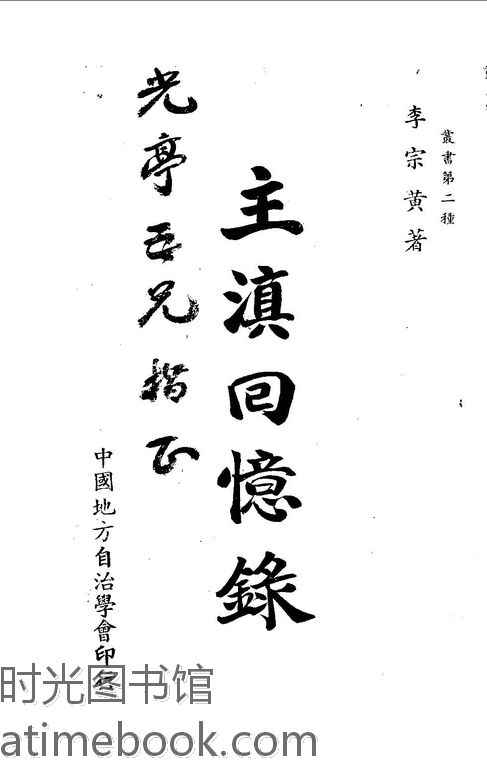 叢書第二種
李宗黃著
主滇回憶錄
光亭吾兄指正
中國地方自治學會印
时光图书馆
atimebook.com